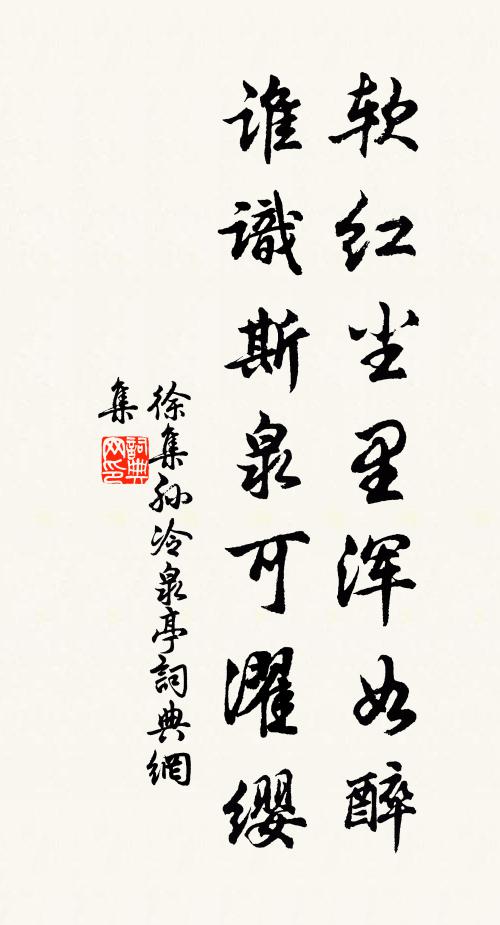 软红尘里浑如醉
谁識斯泉可濯缨
徐集孙冷泉亭詞典網
集
詞典网印